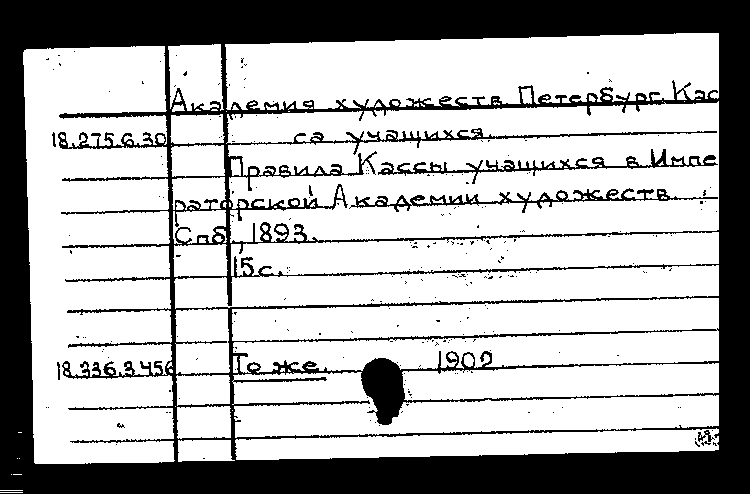 Академия художеств Петербург. Кас
18.275.6.30 са учащихся.
Правила Кассы учащихся в Импе
раторской Академии художеств.
Спб., 1893.
15 с.
18.336.3.456 То же. 1902